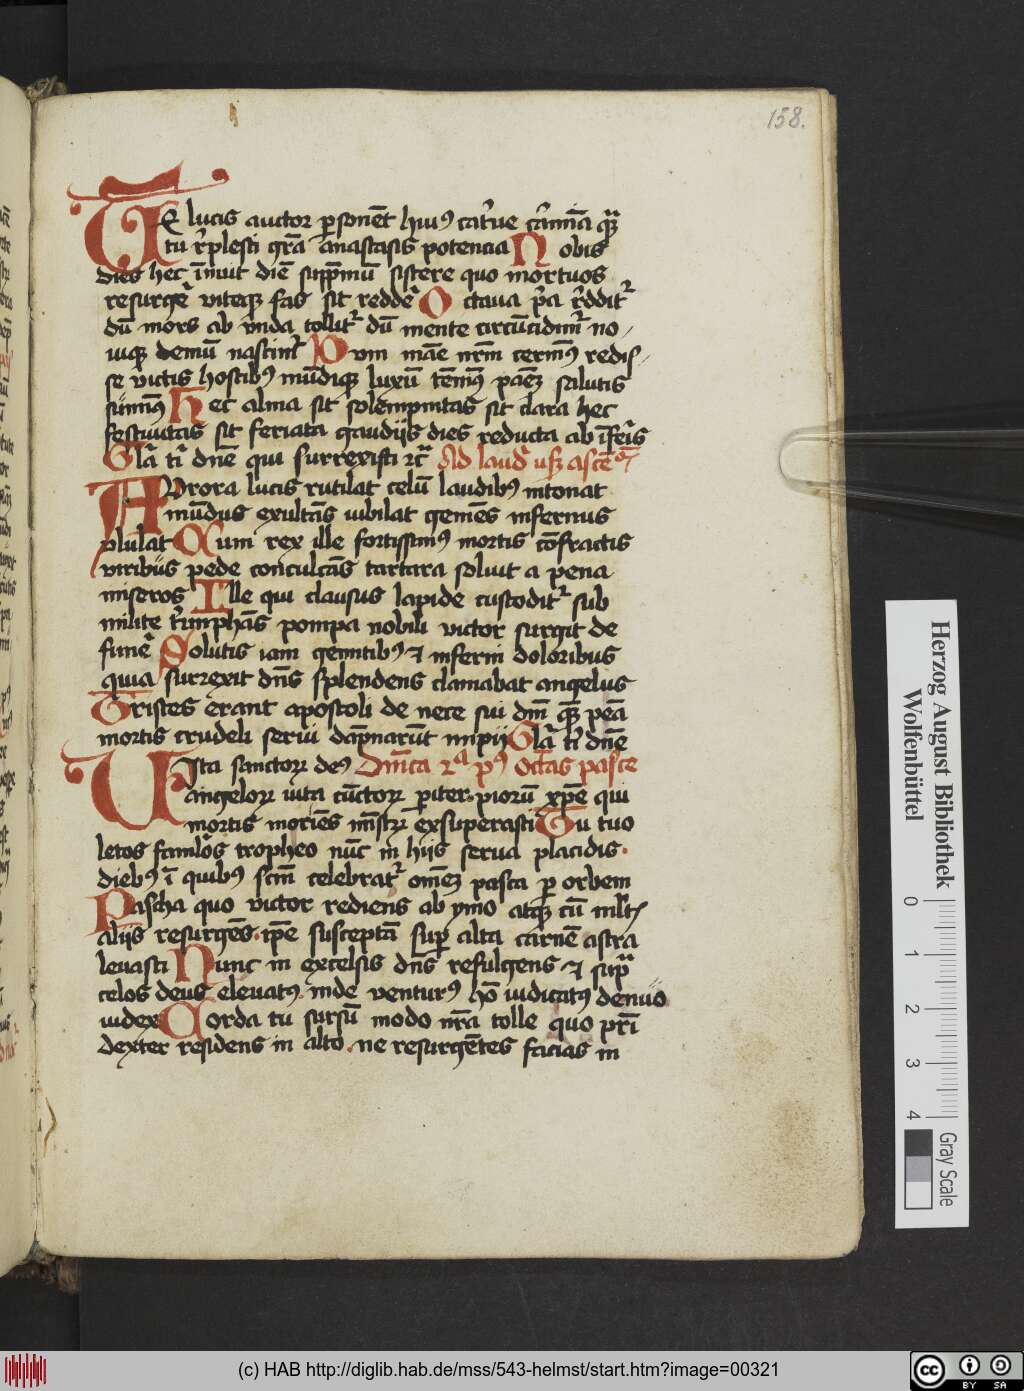 158.
TE lucis auctor ꝑsonēt huiꝰ cat̾ue c̾mīa q̄ꝫ
tu r̾plesti gr̄a anastasis potencia Nobis
dies hec īnuit diē supp̄mū sistere quo mortuos
resurge̾ viteqꝫ fas sit redde̾ Octaua p̾a r̾ddit᷑
dū mors ab vnda tollit᷑ dū mente circūcidim᷑ no
uiqꝫ demū nascim᷑ Cum māe nr̄m cermꝰ redis
se victis hostibꝰ mūdiqꝫ luxū tēmꝰ panē salutis
sumimꝰ Hec alma sit solempnitas sit clara hec
festiuitas sit feriata gaudijs dies reducta ab īferis
Gla̾ t̾ dn̄e qui surrexisti ⁊c̄ Ad laud usꝫ ascē
AVrora lucis rutilat celū laudibꝰ intonat
mūdus exultās iubilat gemēs infernus
vlulat Cum rex ille fortissimꝰ mortis cōfractis
viribus pede conculcās tartara soluit a pena
miseros Ille qui clausus lapide custodit᷑ sub
milite t̾umphās pompa nobili victor surgit de
fune̾ Solutis iam gemitibꝰ ⁊ inferni doloribus
quia surrexit dn̄s splendens clamabat angelus
Tristes erant apostoli de nece sui dn̄i quā pēa
mortis crudeli serui dāpnarūt impij Gla̾ t̾ dn̄e
VIta sanctoꝝ deꝰ Dn̄ica 2ᵃ pꝰ octas pasce
angeloꝝ vita cūctoꝝ ꝑiter piorū xp̄e qui
mortis moriēs mīstꝝ exsuperasti Tu tuo
letos famlōs tropheo nūc in hijs serua placidis
diebꝰ ī quibꝰ scm̄ celebrat᷑ omēꝫ pasca ꝑ orbem
Pascha quo victor rediens ab ymo atqꝫ cū mltꝭ
alijs resurgēs ip̄e susceptā suꝑ alta carnē astra
leuasti Nunc in excelsis dn̄s refulgens ⁊ sup̄
celos deus eleuatꝰ inde venturꝰ hō iudicatꝰ denuo
iudex Corda tu sursū modo nr̄a tolle quo pr̄i
dexter residens in alto ne resurgētes facias in
Herzog August Bibliothek
Wolfenbüttel
0 1 2 3 4
Gray Scale
(c) HAB http://diglib.hab.de/mss/543-helmst/start.htm?image=00321
cc BY SA